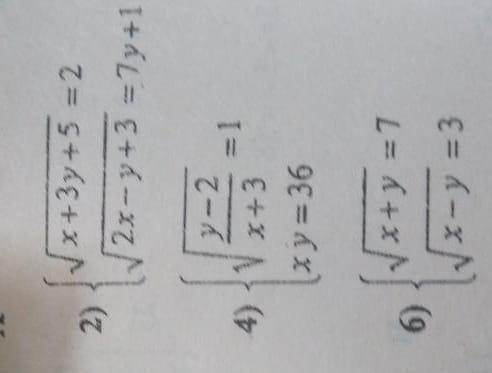 2) { √(x+3y+5) = 2
√(2x−y+3) = 7y+1
4) { √((y−2)/(x+3)) = 1
xy = 36
6) { √(x+y) = 7
√(x−y) = 3